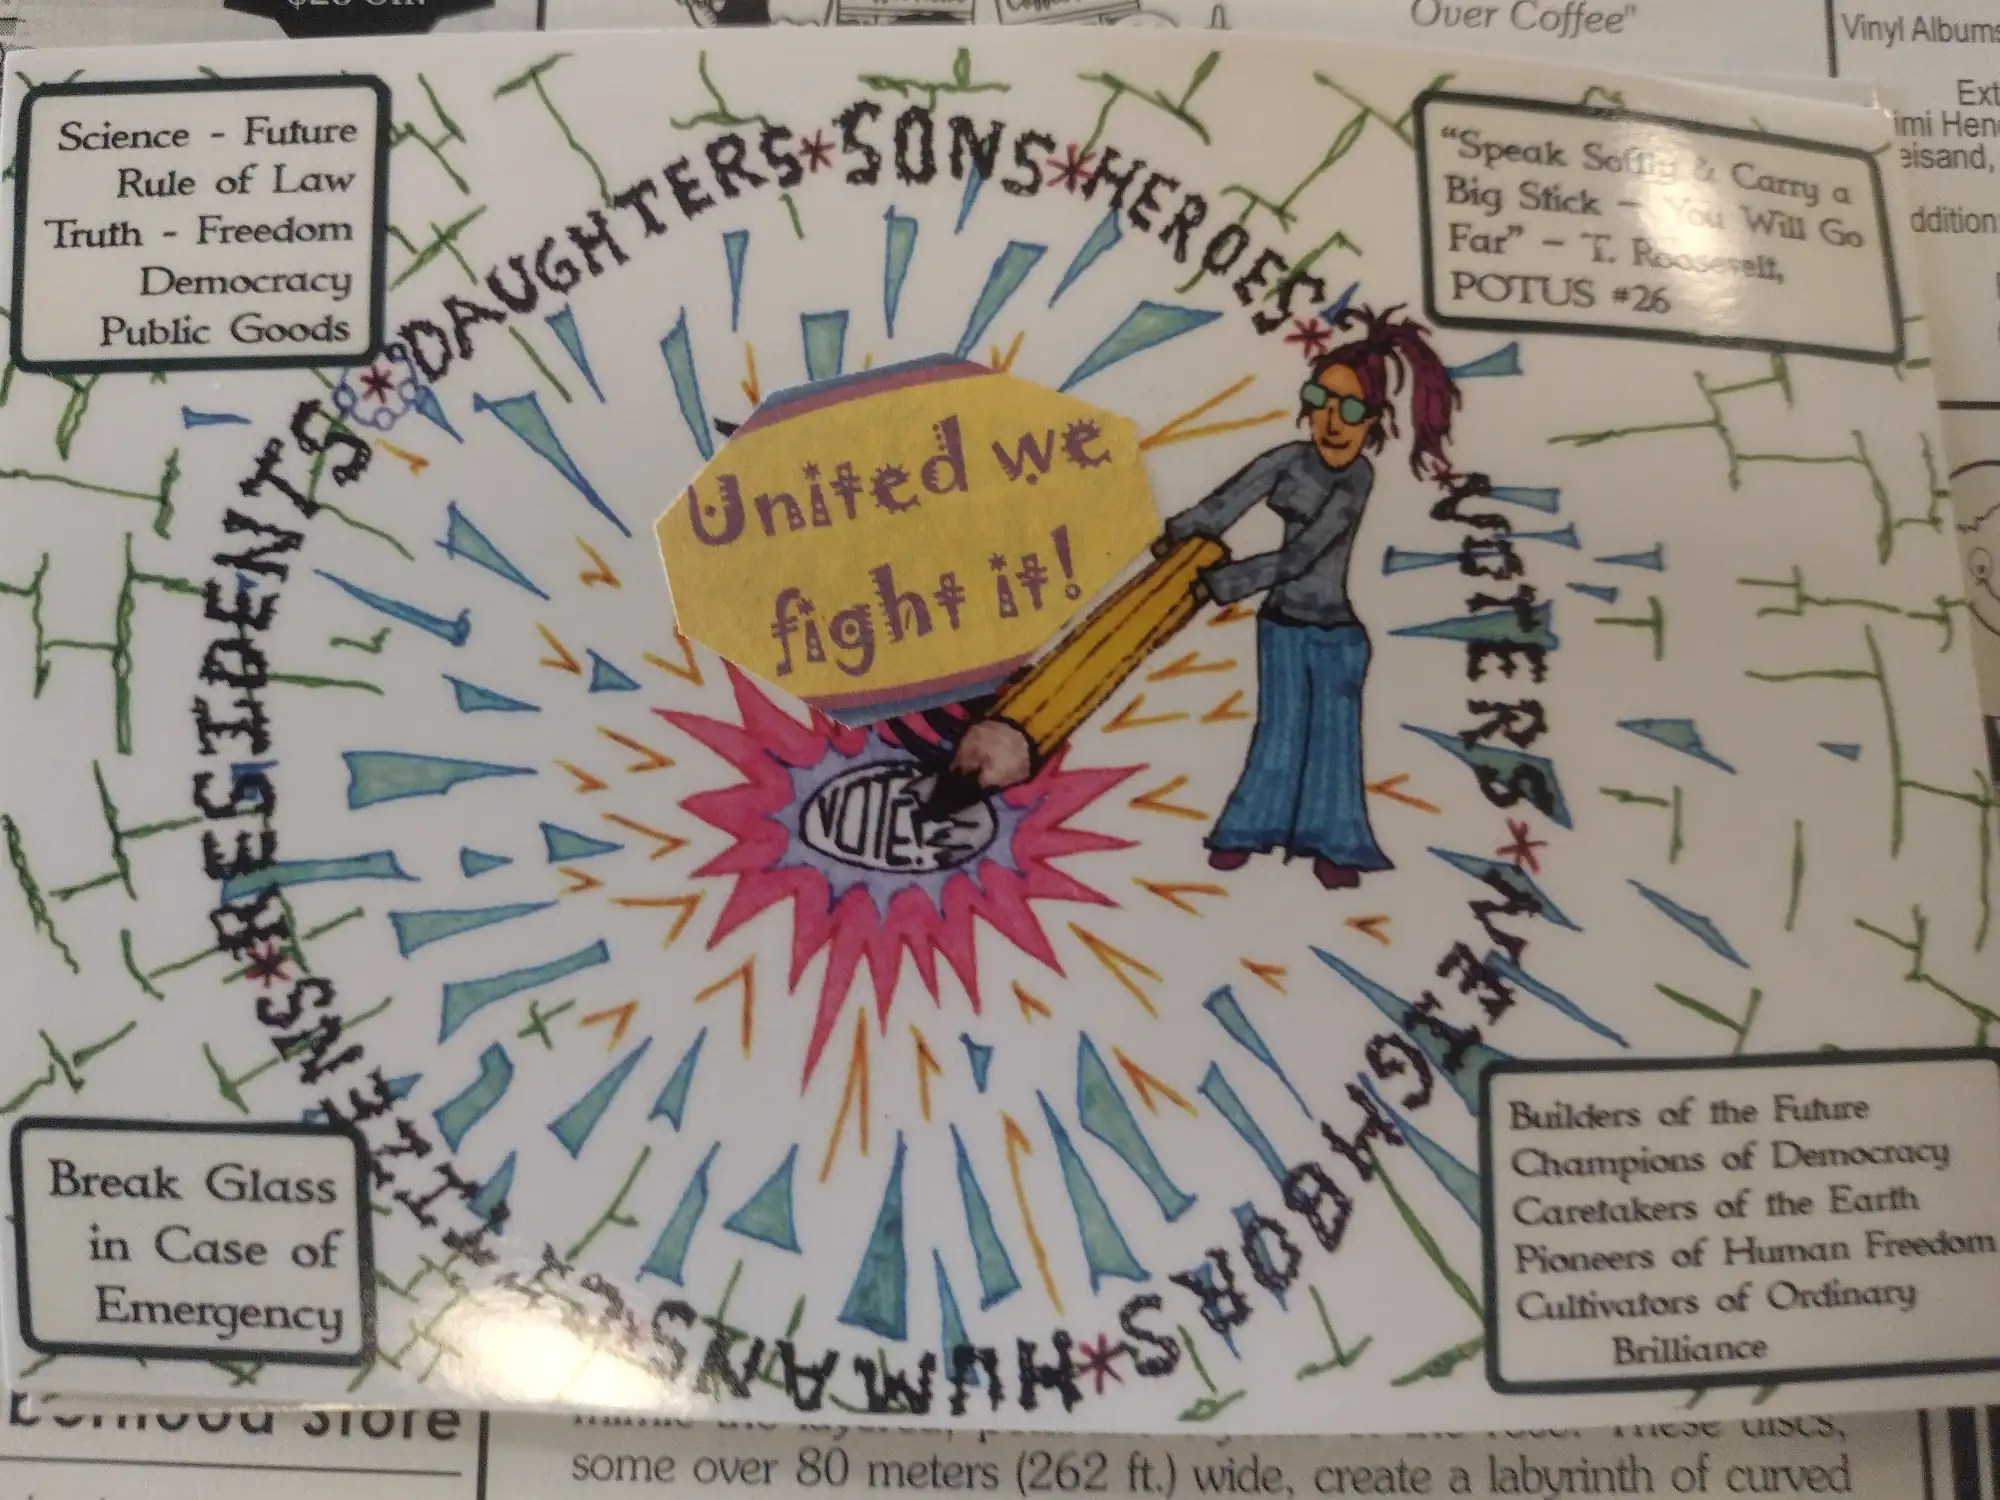 $20 off.
Over Coffee"
Vinyl Albums
Ext
imi Hen
eisand,
ddition
Science - Future
Rule of Law
Truth - Freedom
Democracy
Public Goods
"Speak Softly & Carry a
Big Stick - You Will Go
Far" - T. Roosevelt,
POTUS #26
*DAUGHTERS*SONS*HEROES*
*VOTERS*NEIGHBORS*HUMANS
CITIZENS*RESIDENTS
United we
fight it!
VOTE!
Break Glass
in Case of
Emergency
Builders of the Future
Champions of Democracy
Caretakers of the Earth
Pioneers of Human Freedom
Cultivators of Ordinary
Brilliance
Store
These discs,
some over 80 meters (262 ft.) wide, create a labyrinth of curved